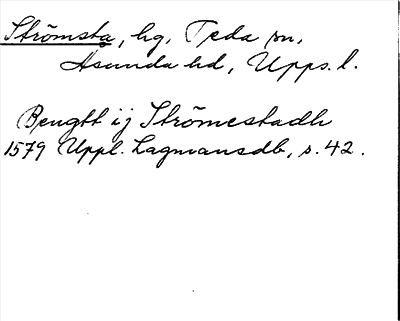 Strömsta, hg, Teda sn,
Asunda hd, Upps. l.
Bengtt ij Strömestadh
1579 Uppl. Lagmansdb, s. 42.